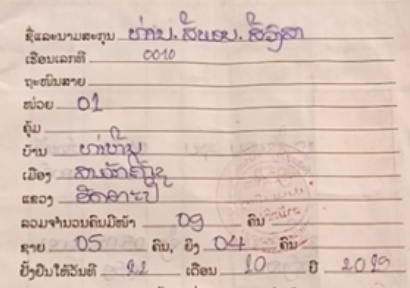 ຊື່ແລະນາມສະກຸນ ທ່ານ. ສົມຊາຍ.
ເຮືອນເລກທີ 0010
ຖະໜົນສາຍ
ໜ່ວຍ 01
ຄຸ້ມ
ບ້ານ ທ່າຫີນ
ເມືອງ ສາມັກຄີໄຊ
ແຂວງ ອັດຕະປື
ລວມຈຳນວນຄົນມີໜ້າ 09 ຄົນ
ຊາຍ 05 ຄົນ, ຍິງ 04 ຄົນ
ຢັ້ງຢືນໃຫ້ວັນທີ 22 ເດືອນ 10 ປີ 2019